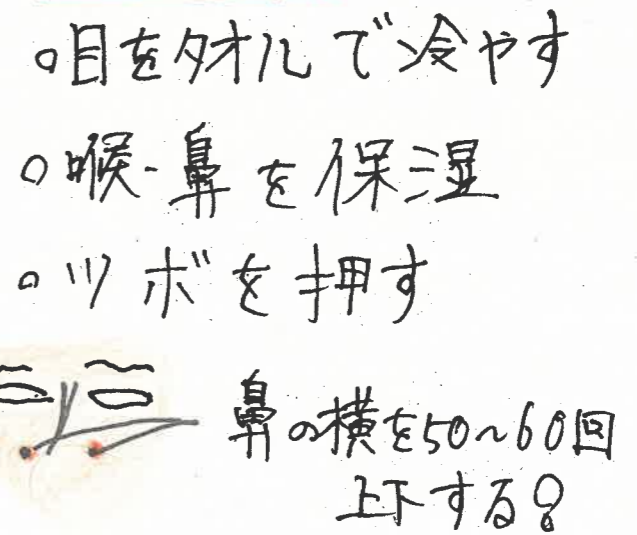 ○目をタオルで冷やす
○喉・鼻を保湿
○ツボを押す
鼻の横を50~60回
上下する?